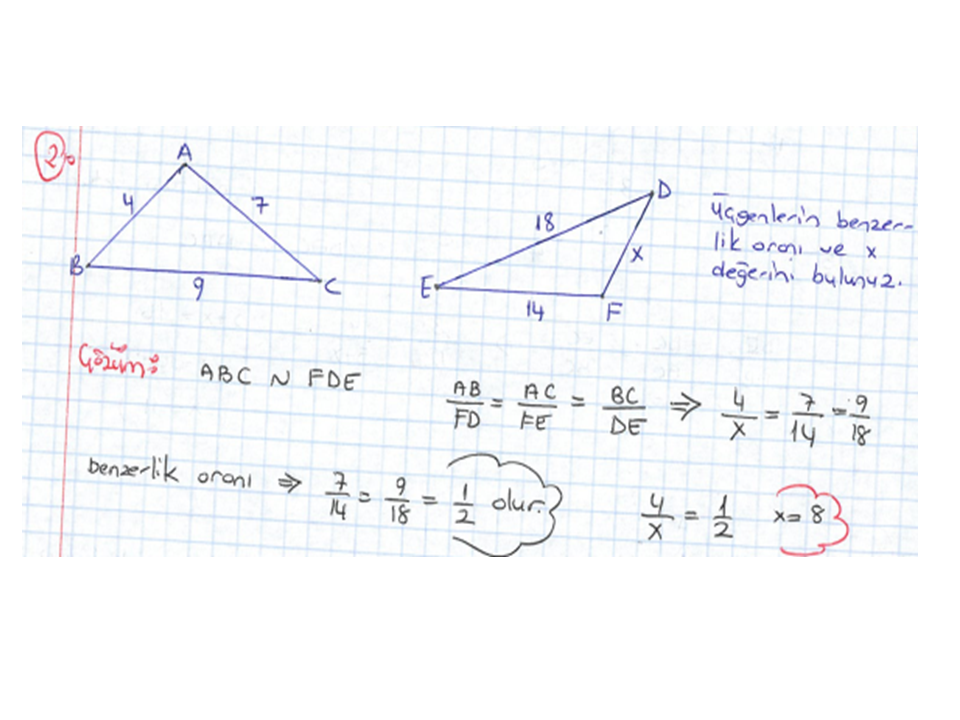 2)
A
4
7
B
9
C
D
18
x
E
14
F
üçgenlerin benzer-
lik oranı ve x
değerini bulunuz.
Çözüm:
ABC ~ FDE
AB/FD = AC/FE = BC/DE ⇒ 4/x = 7/14 = 9/18
benzerlik oranı ⇒ 7/14 = 9/18 = 1/2 olur.
4/x = 1/2 x = 8